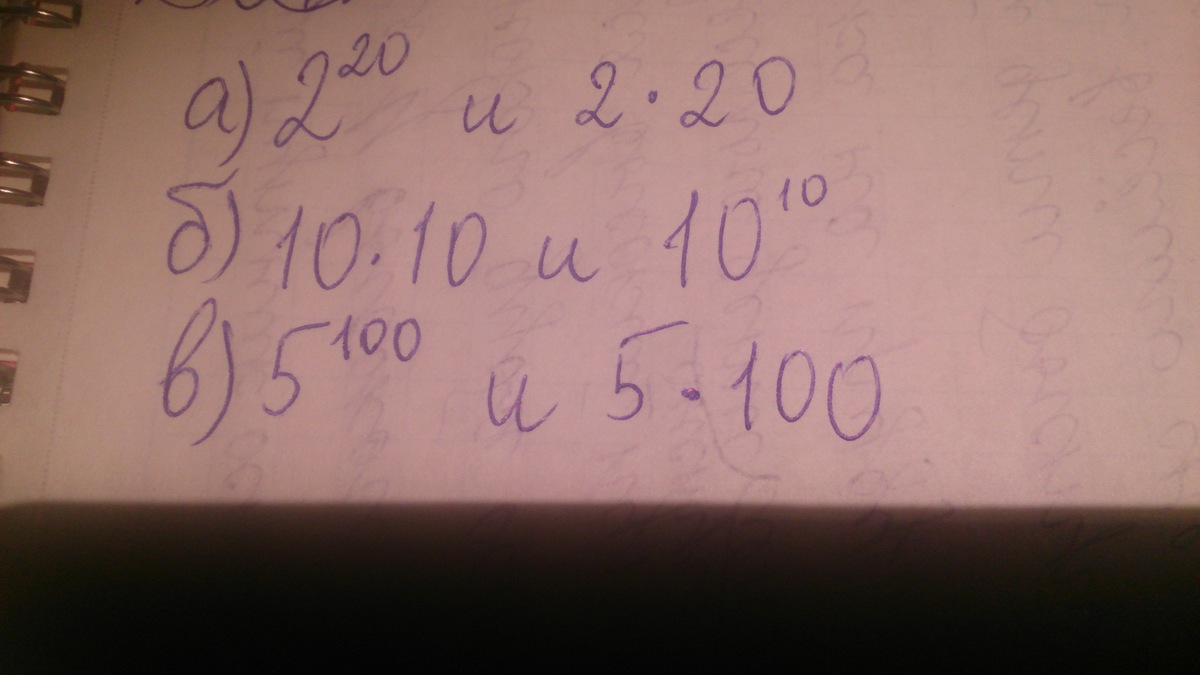 а) 2²⁰ и 2·20
б) 10·10 и 10¹⁰
в) 5¹⁰⁰ и 5·100